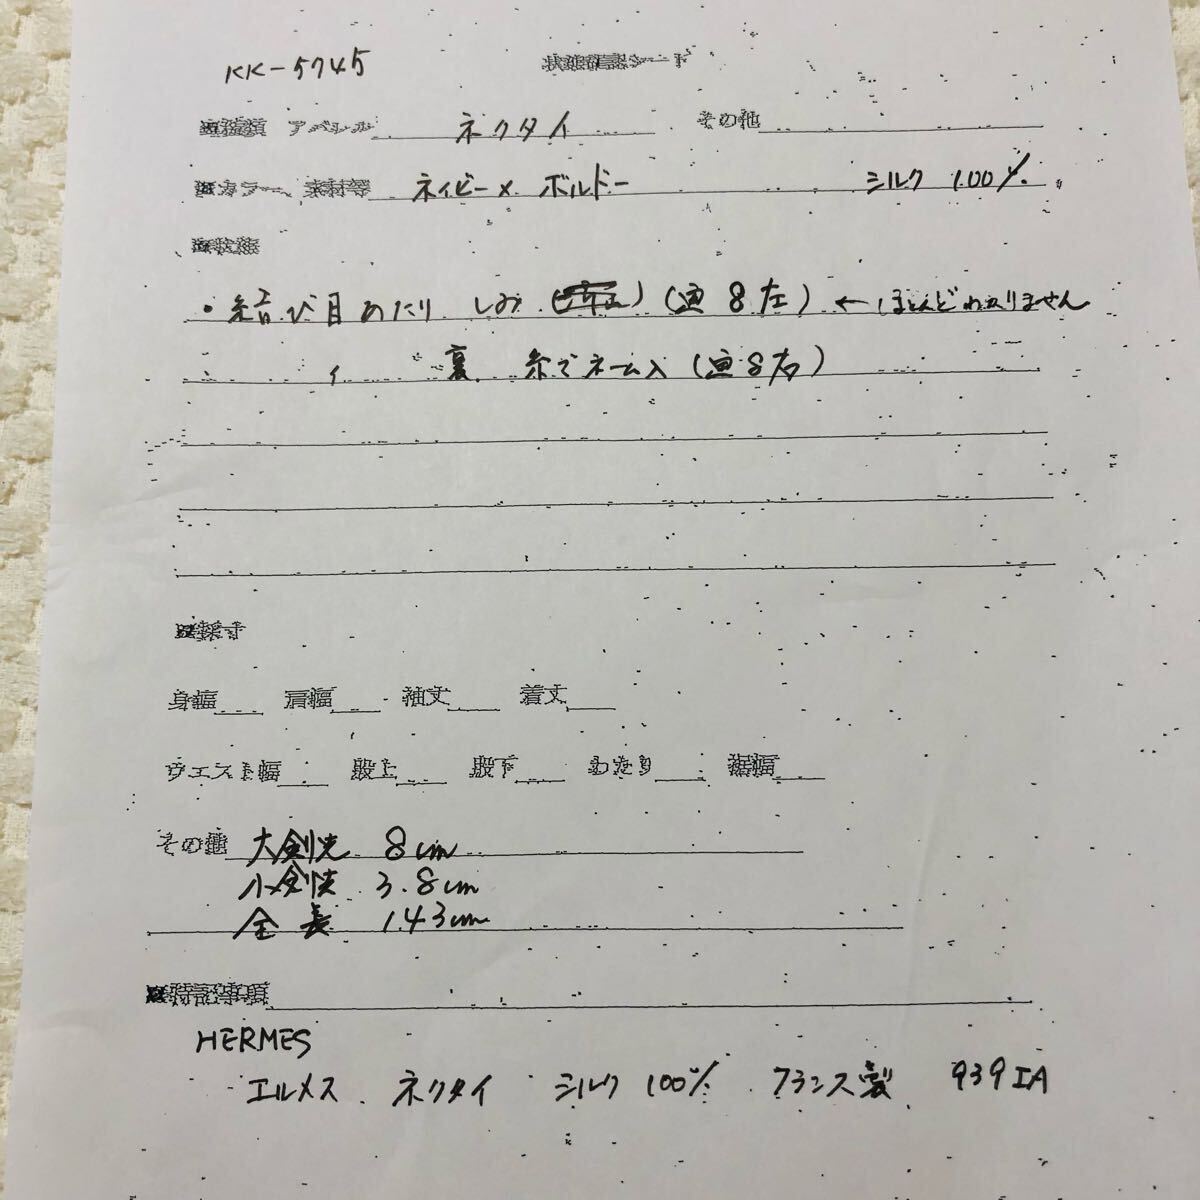 KK-5745 状態確認シート
■種類 アパレル ネクタイ その他
■カラー、素材等 ネイビー× ボルドー シルク 100%
■状態
・結び目あたり しみ (画8左) ← ほとんどわかりません
〃 裏 糸でネーム入 (画8右)
■採寸
身幅 肩幅 袖丈 着丈
ウエスト幅 股上 股下 わたり 裾幅
その他 大剣先 8cm
小剣先 3.8cm
全長 143cm
■特記事項
HERMES
エルメス ネクタイ シルク 100% フランス製 939IA